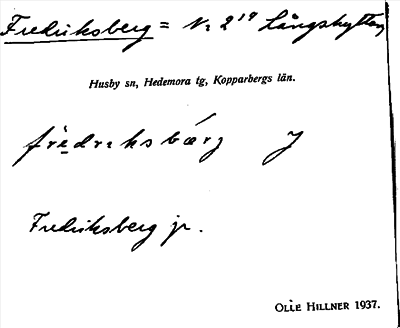 Fredriksberg = N: 2¹⁹ Långshyttan
Husby sn, Hedemora tg, Kopparbergs län.
fredreksbærg J
Fredriksberg jr.
OLLE HILLNER 1937.